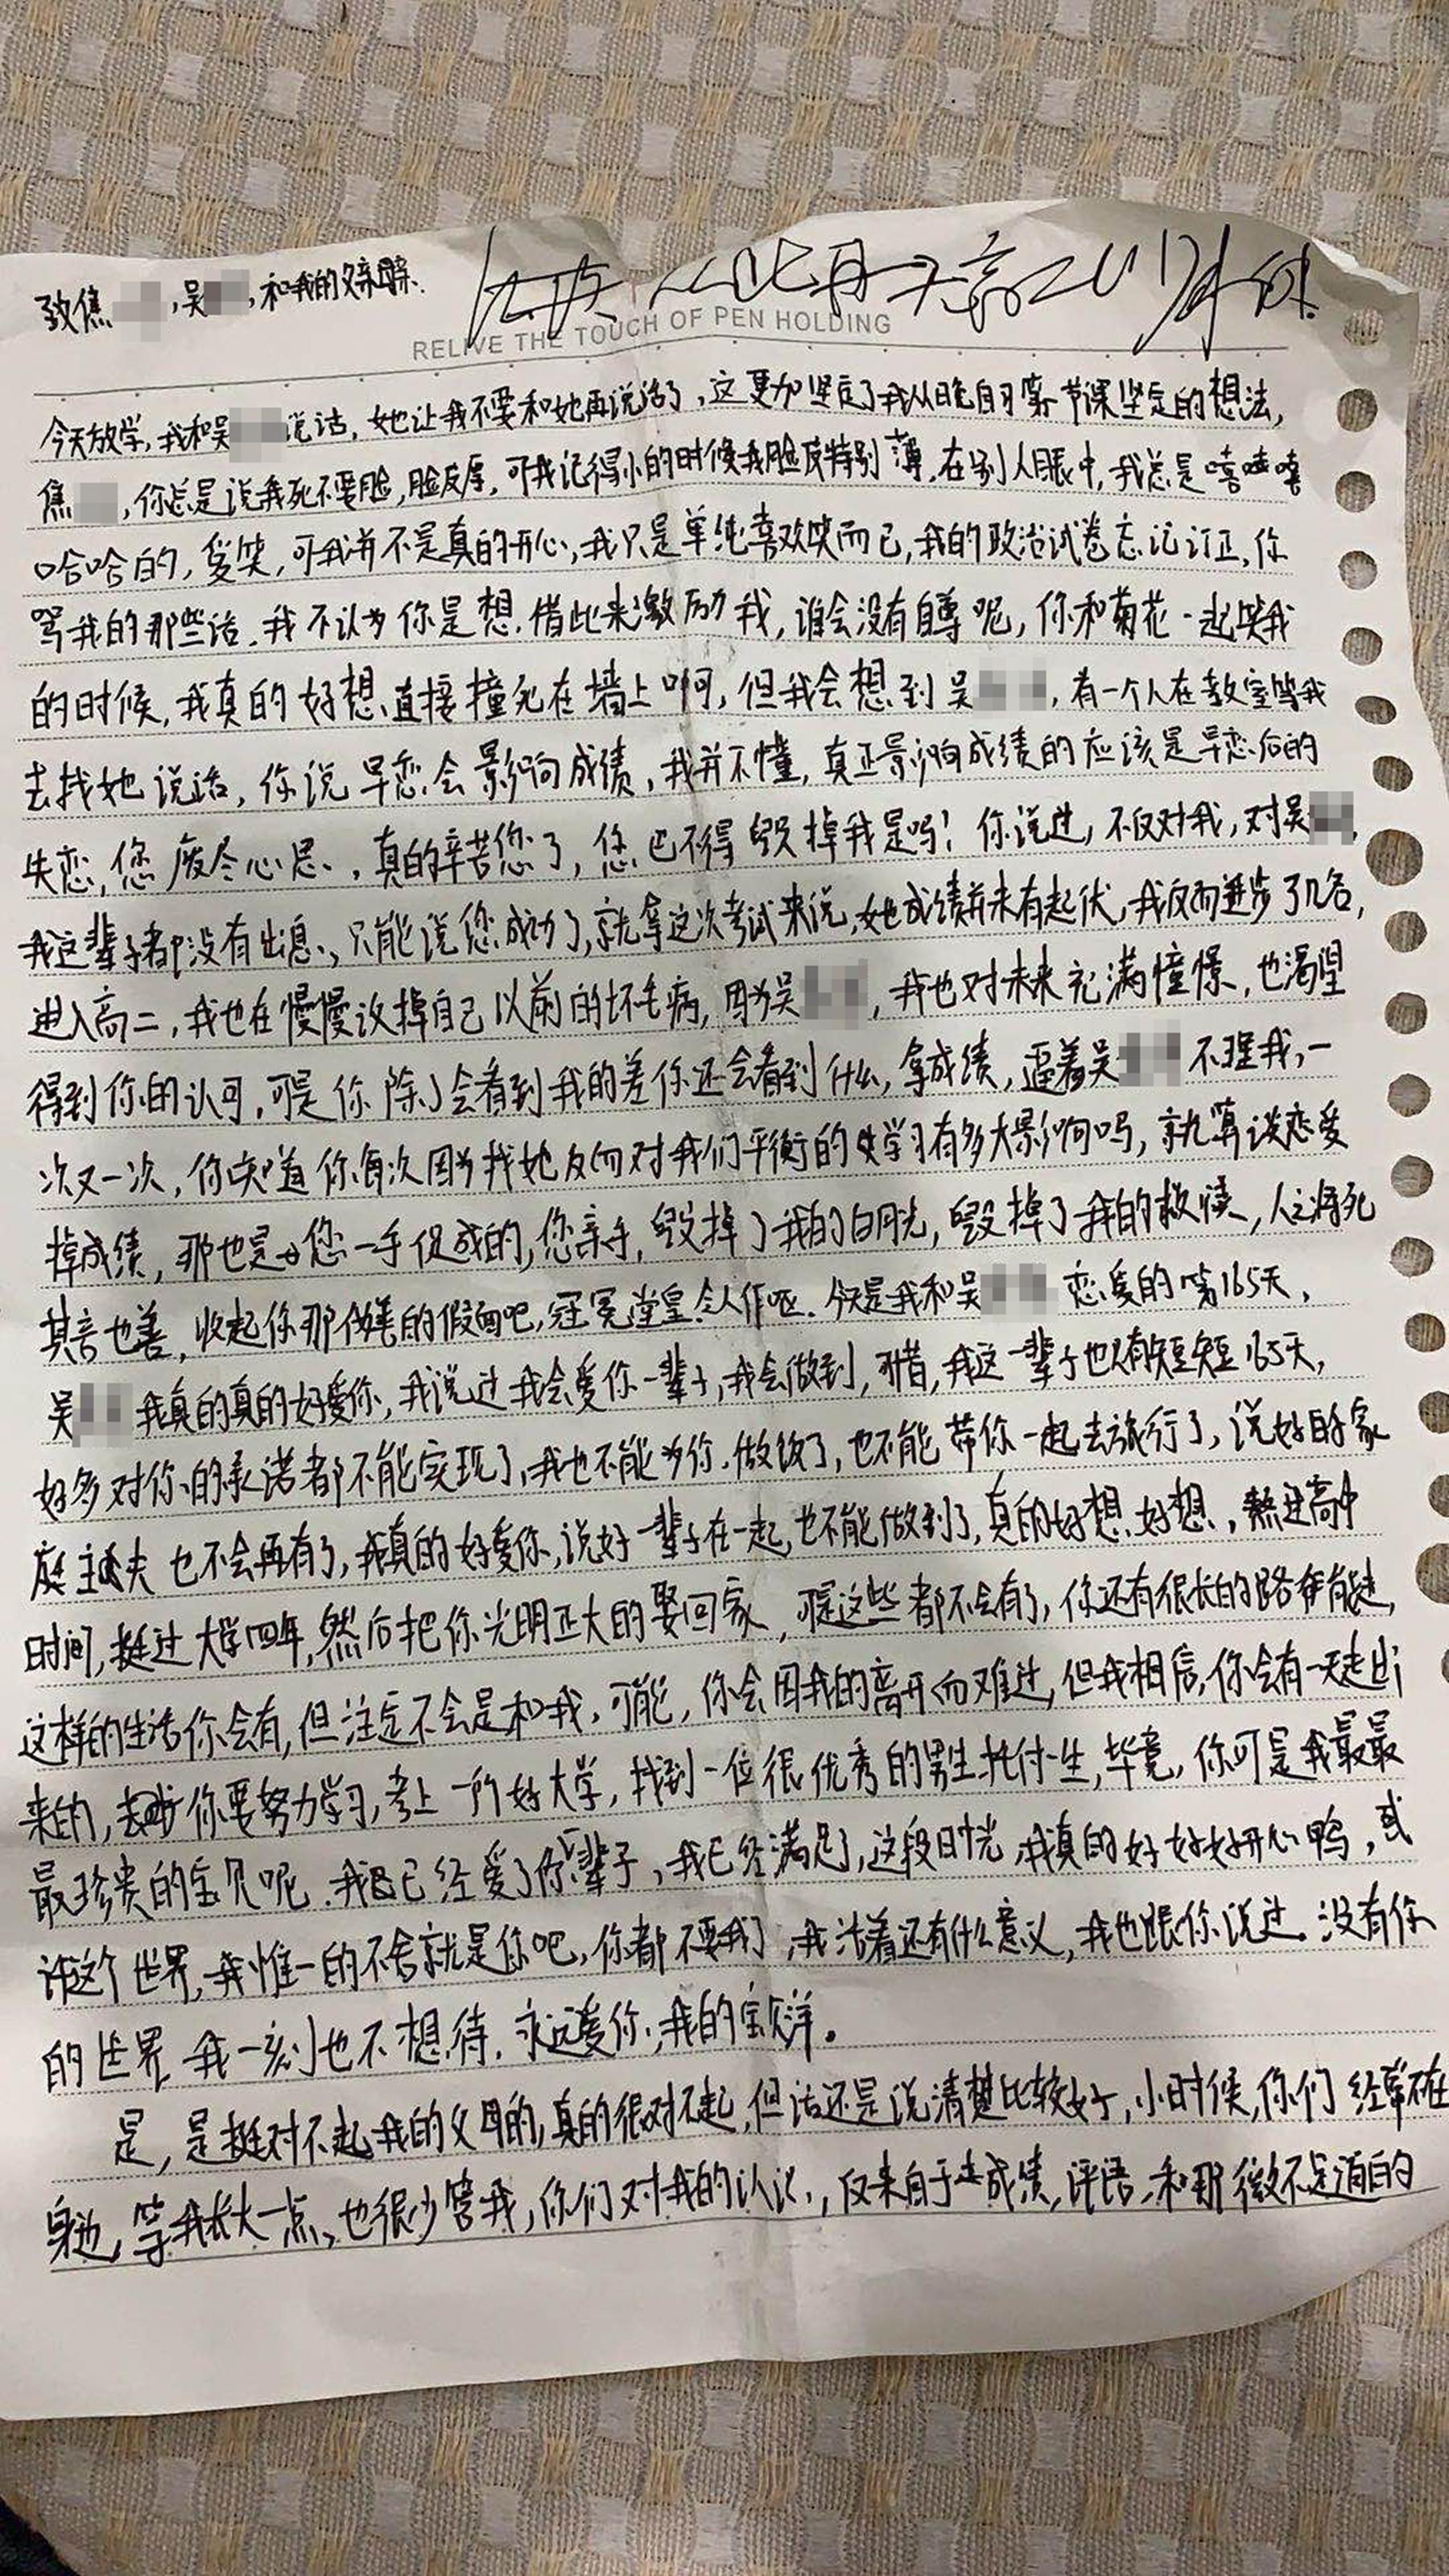 致焦 ,吴 ,和我的父亲母亲.
RELIVE THE TOUCH OF PEN HOLDING
今天放学,我和吴 说话,她让我不要和她再说话了,这更加坚定了我从晚自习第一节课坚定的想法,
焦 ,你总是说我死不要脸,脸皮厚,可我记得小的时候我脸皮特别薄,在别人眼中,我总是嘻嘻嘻
哈哈的,爱笑,可我并不是真的开心,我只是单纯喜欢笑而已,我的政治试卷忘记订正,你
骂我的那些话,我不认为你是想借此来激励我,谁会没有自尊呢,你和菊花一起笑我
的时候,我真的好想直接撞死在墙上啊,但我会想到吴 ,有一个人在教室等我
去找她说话,你说早恋会影响成绩,我并不懂,真正影响成绩的应该是早恋后的
失恋,您废尽心思,真的辛苦您了,您巴不得毁掉我是吗!你说过,不仅对我,对吴 ,
我这辈子都没有出息,只能说您成功了,就拿这次考试来说,她成绩并未有起伏,我反而进步了几名,
进入高二,我也在慢慢改掉自己以前的坏毛病,因为吴 ,我也对未来充满憧憬,也渴望
得到你的认可,可是你除了会看到我的差你还会看到什么,拿成绩,逼着吴 不理我,一
次又一次,你知道你每次因为找她反而对我们平衡的学习有多大影响吗,就算谈恋爱
掉成绩,那也是您一手促成的,您亲手,毁掉了我的白月光,毁掉了我的救赎,人之将死
其言也善,收起你那伪善的假面吧,冠冕堂皇,令人作呕.今天是我和吴 恋爱的第165天,
吴 我真的真的好爱你,我说过我会爱你一辈子,我会做到,可惜,我这一辈子也只有短短165天,
好多对你的承诺都不能实现了,我也不能为你做饭了,也不能带你一起去旅行了,说好的家
庭主夫也不会再有了,我真的好爱你,说好一辈子在一起,也不能做到了,真的好想好想,熬过高中
时间,挺过大学四年,然后把你光明正大的娶回家,可是这些都不会有了,你还有很长的路要走,
这样的生活你会有,但注定不会是和我,可能,你会因我的离开而难过,但我相信,你会有一天走出
来的,你要努力学习,考上一所好大学,找到一位很优秀的男生托付一生,毕竟,你可是我最最
最珍贵的宝贝呢.我已经爱了你一辈子,我已经满足了,这段时光,我真的好好好开心鸭,或
许这个世界,我惟一的不舍就是你吧,你都不要我了,我活着还有什么意义,我也跟你说过,没有你
的世界,我一刻也不想待.永远爱你,我的宝贝洋。
是,是挺对不起我的父母的,真的很对不起,但话还是说清楚比较好,小时候,你们经常不在
身边,等我长大一点,也很少管我,你们对我的认识,仅来自于成绩,评语,和那微不足道的